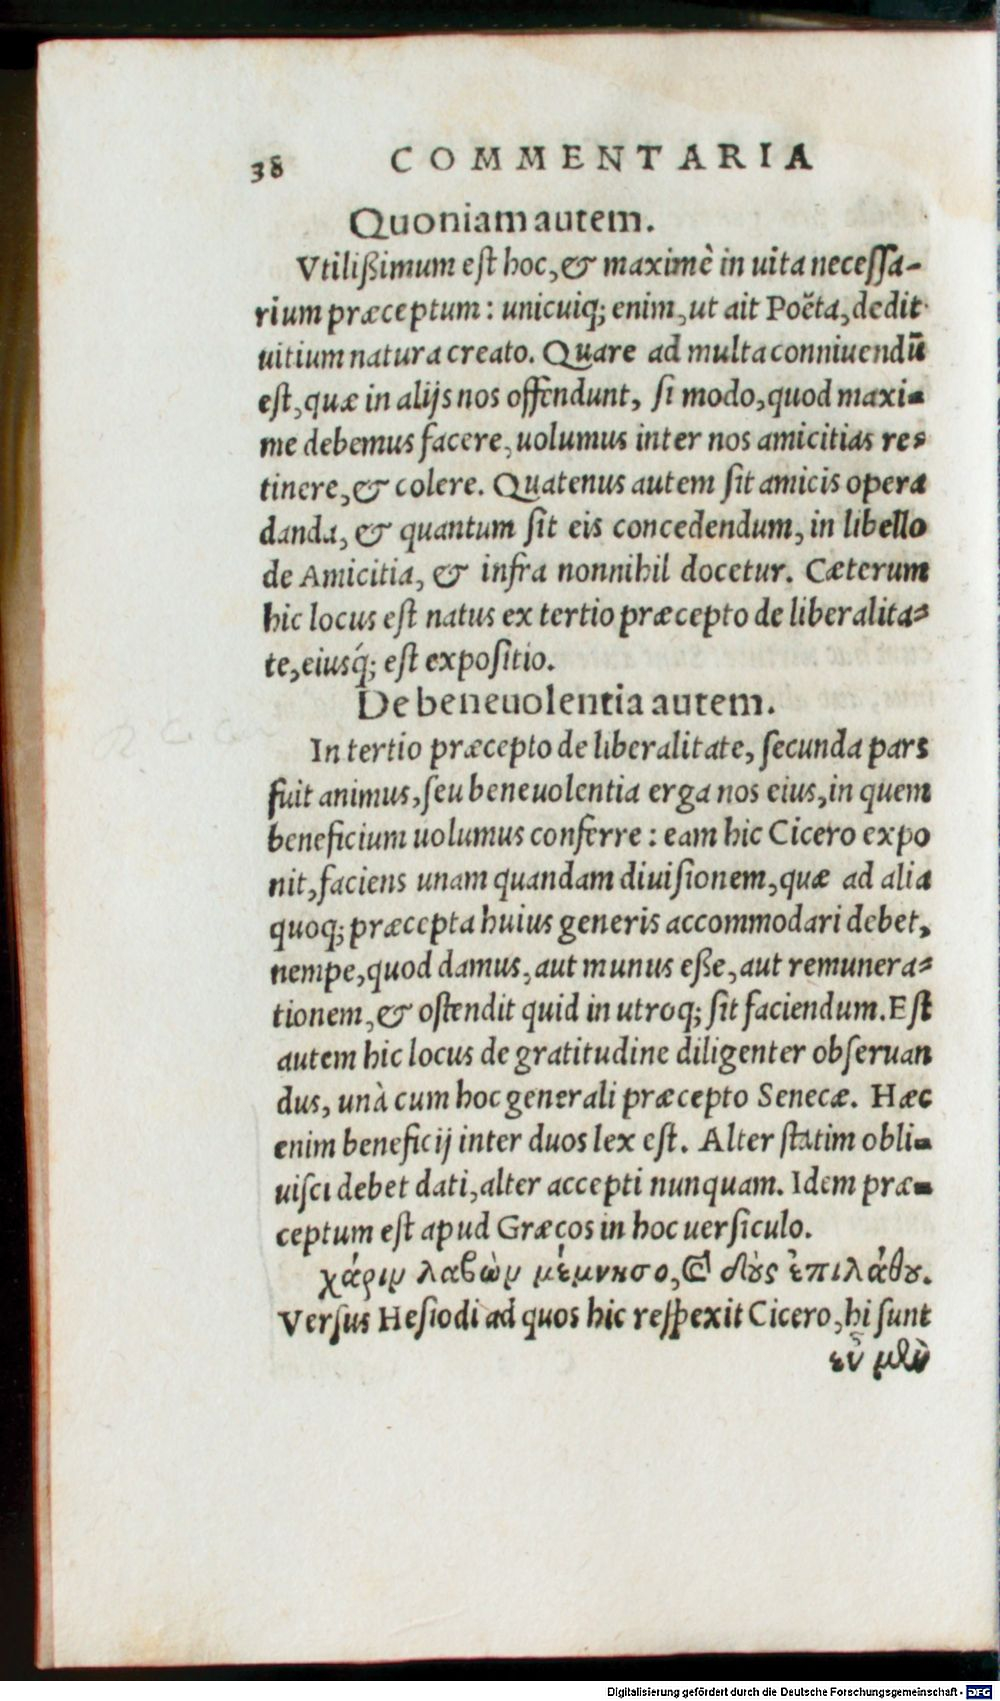 38 COMMENTARIA
Quoniam autem.
Vtilißimum est hoc, & maximè in uita necessa-
rium præceptum: unicuiq; enim, ut ait Poëta, dedit
uitium natura creato. Quare ad multa conniuendũ
est, quæ in alijs nos offendunt, si modo, quod maxi-
me debemus facere, uolumus inter nos amicitias re-
tinere, & colere. Quatenus autem sit amicis opera
danda, & quantum sit eis concedendum, in libello
de Amicitia, & infra nonnihil docetur. Cæterum
hic locus est natus ex tertio præcepto de liberalita-
te, eiusq́; est expositio.
De beneuolentia autem.
In tertio præcepto de liberalitate, secunda pars
fuit animus, seu beneuolentia erga nos eius, in quem
beneficium uolumus conferre: eam hic Cicero expo
nit, faciens unam quandam diuisionem, quæ ad alia
quoq; præcepta huius generis accommodari debet,
nempe, quod damus, aut munus eße, aut remunera-
tionem, & ostendit quid in utroq; sit faciendum. Est
autem hic locus de gratitudine diligenter obseruan
dus, unà cum hoc generali præcepto Senecæ. Hæc
enim beneficij inter duos lex est. Alter statim obli-
uisci debet dati, alter accepti nunquam. Idem præ-
ceptum est apud Græcos in hoc uersiculo.
χάριν λαβὼν μέμνησο, καὶ δοὺς ἐπιλάθου.
Versus Hesiodi ad quos hic respexit Cicero, hi sunt
εὖ μὲν
Digitalisierung gefördert durch die Deutsche Forschungsgemeinschaft - DFG